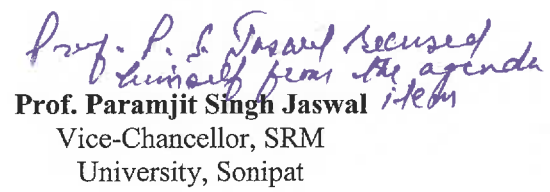 Prof. P. S. Jaswal recused
himself from the agenda
item
Prof. Paramjit Singh Jaswal
Vice-Chancellor, SRM
University, Sonipat